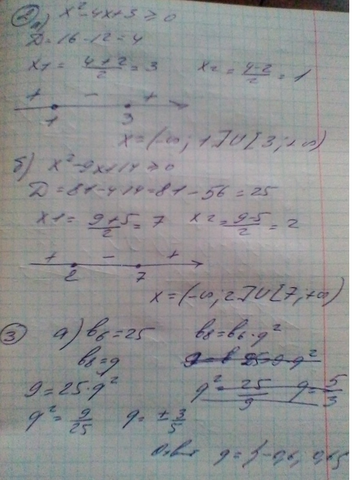 ② а) x² - 4x + 3 ≥ 0
D = 16 - 12 = 4
x1 = (4+2)/2 = 3 x2 = (4-2)/2 = 1
+ - +
1 3
x = (-∞; 1] ∪ [3; +∞)
б) x² - 9x + 14 ≥ 0
D = 81 - 4·14 = 81 - 56 = 25
x1 = (9+5)/2 = 7 x2 = (9-5)/2 = 2
+ - +
2 7
x = (-∞, 2] ∪ [7, +∞)
③ а) b6 = 25 b8 = b6 · q²
b8 = 9
9 = 25 · q² q² = 25/9 q = 5/3
q² = 9/25 q = ± 3/5
Ответ q = {-0,6, 0,6}